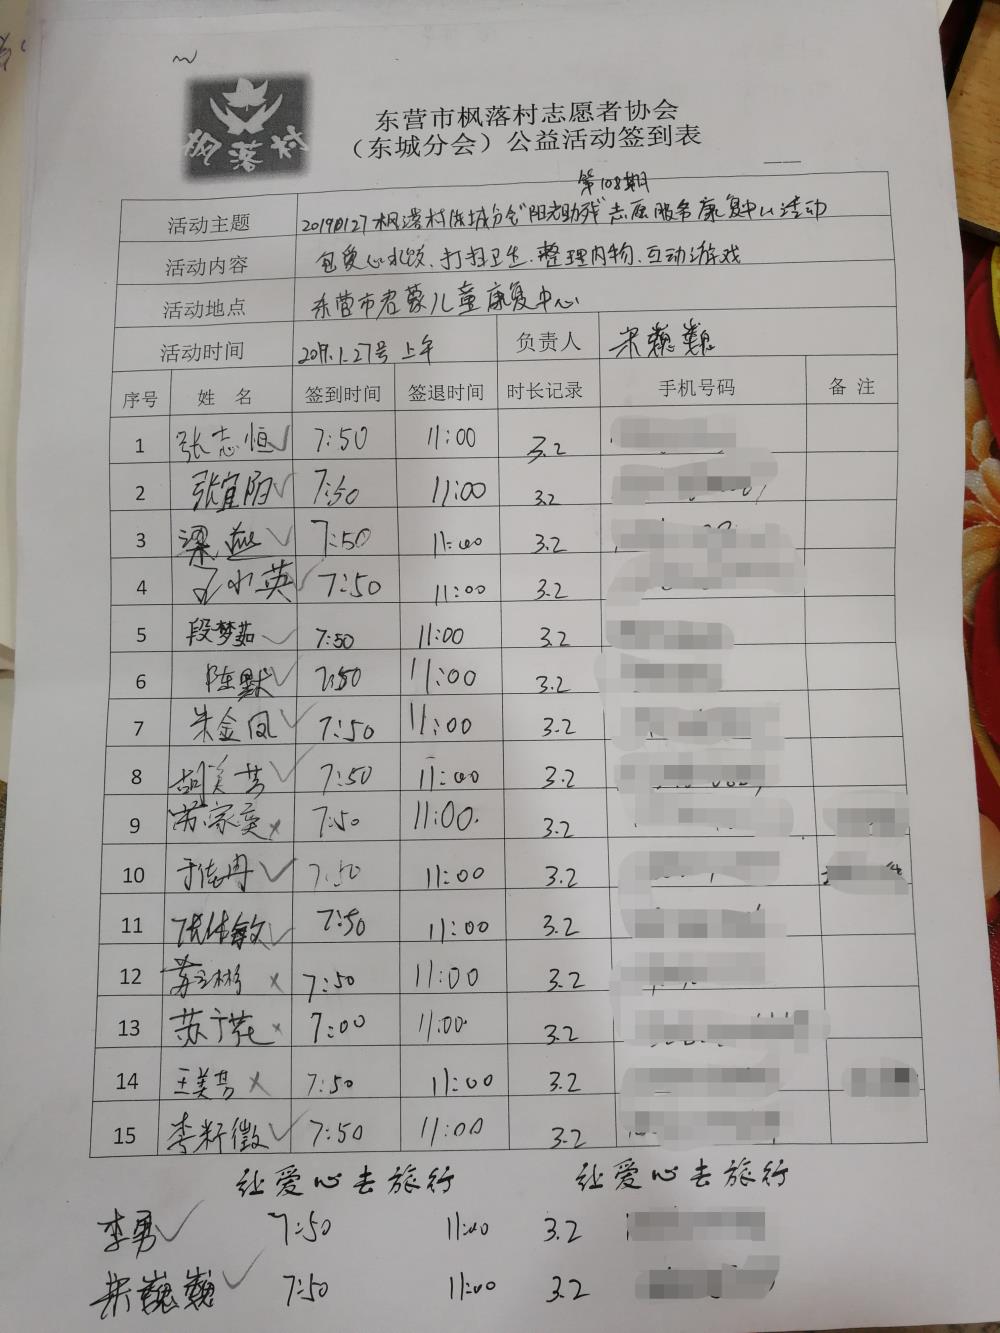 枫落村
东营市枫落村志愿者协会
（东城分会）公益活动签到表
第108期
活动主题 20190127枫落村东城分会"阳光助残"志愿服务康复中心活动
活动内容 包爱心水饺、打扫卫生、整理内物、互动游戏
活动地点 东营市启蒙儿童康复中心
活动时间 2019.1.27号上午 负责人 宋巍巍
序号 姓名 签到时间 签退时间 时长记录 手机号码 备注
1 张志恒✓ 7:50 11:00 3.2
2 张宜阳✓ 7:50 11:00 3.2
3 梁燕✓ 7:50 11:00 3.2
4 孔水英✓ 7:50 11:00 3.2
5 段梦茹✓ 7:50 11:00 3.2
6 陈默✓ 7:50 11:00 3.2
7 朱金凤✓ 7:50 11:00 3.2
8 胡美芳✓ 7:50 11:00 3.2
9 苏家奕× 7:50 11:00. 3.2
10 于佳冉✓ 7:50 11:00 3.2
11 张伟敏✓ 7:50 11:00 3.2
12 苏彬× 7:50 11:00 3.2
13 苏广花× 7:00 11:00 3.2
14 王美× 7:50 11:00 3.2
15 李籽徵✓ 7:50 11:00 3.2
让爱心去旅行 让爱心去旅行
李勇✓ 7:50 11:00 3.2
宋巍巍✓ 7:50 11:00 3.2